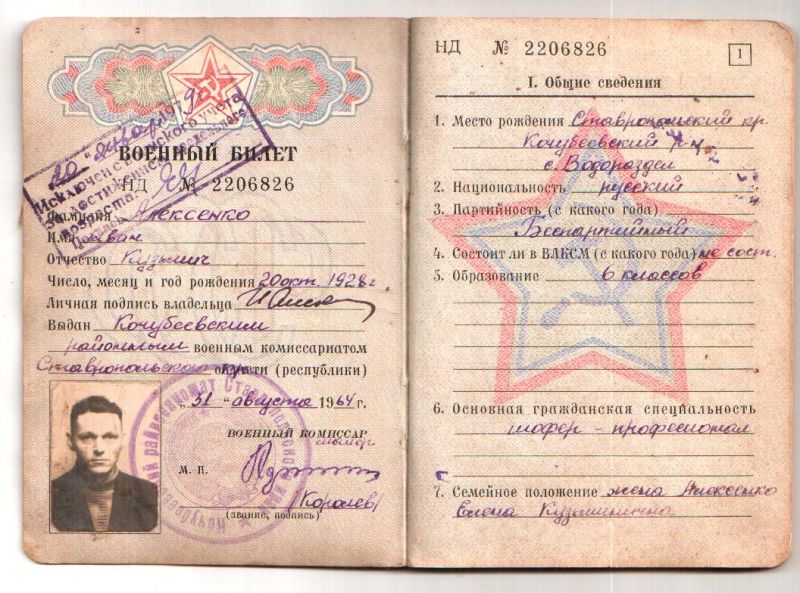 20 "января 19
Исключен с воинского учета
за достижением предельного
возраста.
ВОЕННЫЙ БИЛЕТ
НД № 2206826
Фамилия Алексенко
Имя Иван
Отчество Кузьмич
Число, месяц и год рождения 20 окт. 1928 г
Личная подпись владельца
Выдан Кочубеевским
районным военным комиссариатом
Ставропольского края области (республики)
"31 "августа 1964 г.
ВОЕННЫЙ КОМИССАР
майор
М. П.
(Королев)
(звание, подпись)
НД № 2206826
1
I. Общие сведения
1. Место рождения Ставропольский кр.
Кочубеевский р-н
с. Водораздел
2. Национальность русский
3. Партийность (с какого года)
Беспартийный
4. Состоит ли в ВЛКСМ (с какого года) не сост.
5. Образование 6 классов
6. Основная гражданская специальность
шофер - профессионал
7. Семейное положение жена Алексенко
Елена Кузьминична